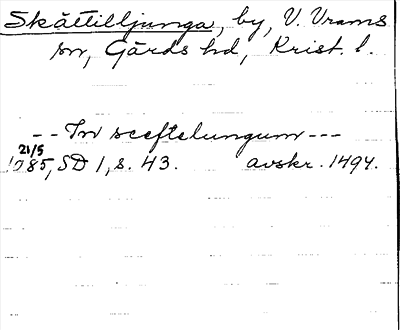 Skättilljunga, by, V. Vrams
sn, Gärds hd, Krist. l.
-- In sceftelungum ---
21/5
1085, SD 1, s. 43. avskr. 1494.